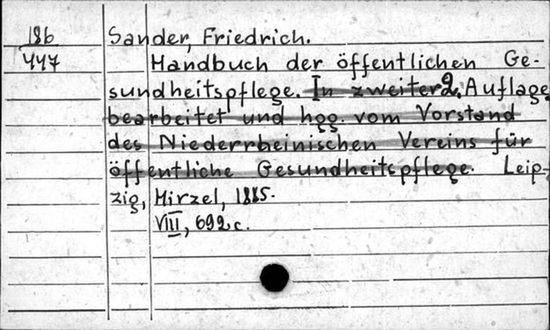 186
447
Sander, Friedrich.
Handbuch der öffentlichen Ge-
sundheitspflege. In zweiter 2. Auflage
bearbeitet und hgg. vom Vorstand
des Niederrheinischen Vereins für
öffentliche Gesundheitspflege. Leip-
zig, Hirzel, 1885.
VIII, 692 c.